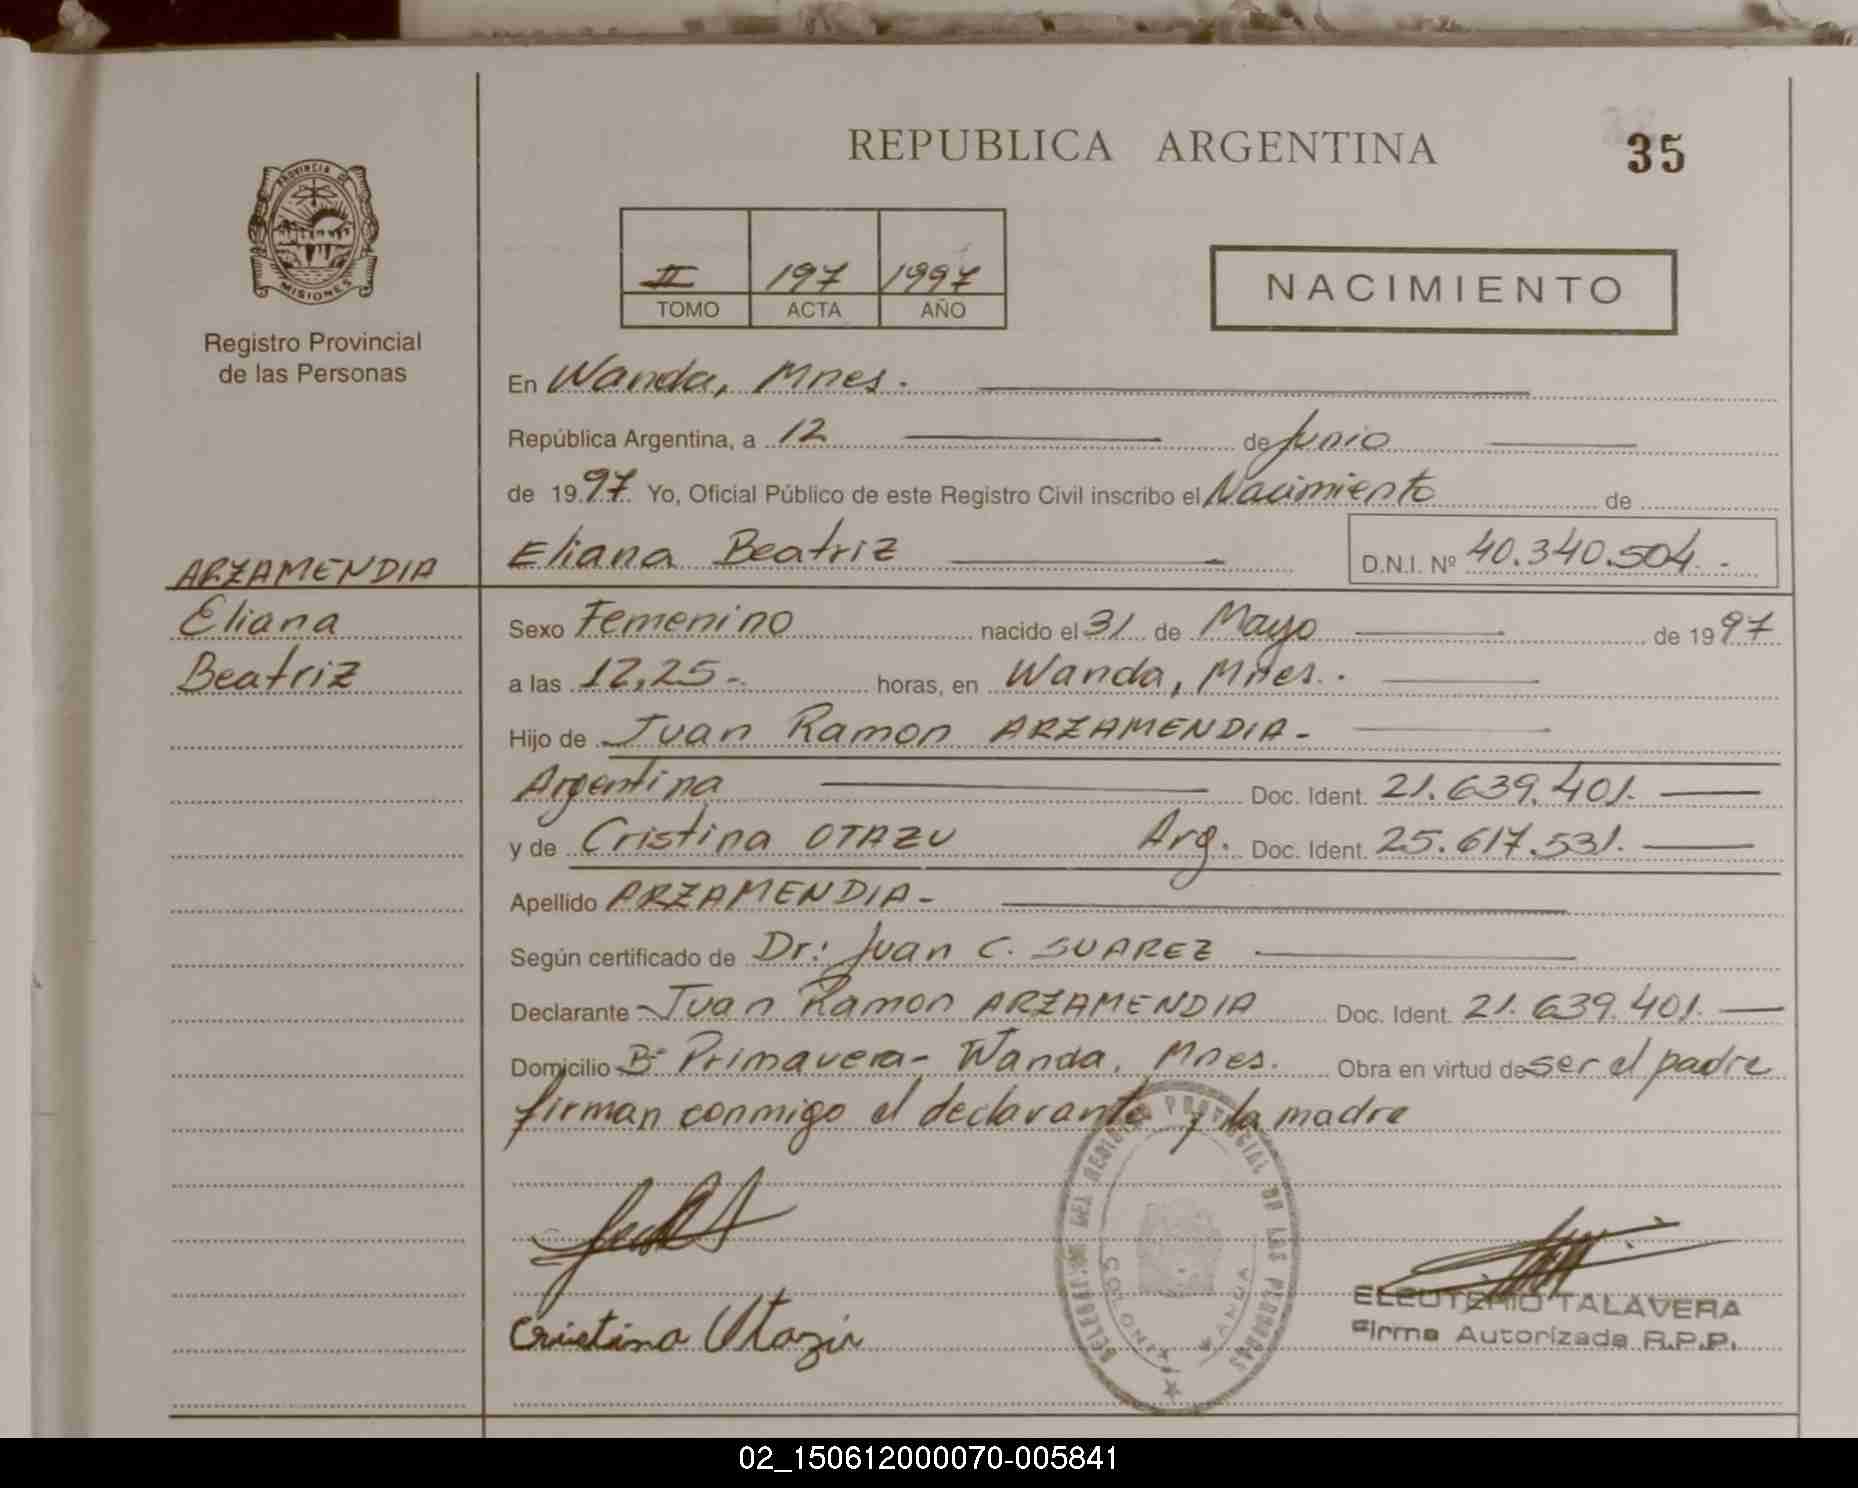 REPUBLICA ARGENTINA
35
PROVINCIA DE
MISIONES
Registro Provincial
de las Personas
II 197 1997
TOMO ACTA AÑO
NACIMIENTO
En Wanda, Mnes.
República Argentina, a 12 de Junio
de 1997 Yo, Oficial Público de este Registro Civil inscribo el Nacimiento de
Eliana Beatriz D.N.I. Nº 40.340.504.-
ARZAMENDIA
Eliana
Beatriz
Sexo Femenino nacido el 31 de Mayo de 1997
a las 12,25- horas, en Wanda, Mnes.
Hijo de Juan Ramon ARZAMENDIA-
Argentina Doc. Ident. 21.639.401.
y de Cristina OTAZU Arg. Doc. Ident. 25.617.531.
Apellido ARZAMENDIA-
Según certificado de Dr: Juan C. SUAREZ
Declarante Juan Ramon ARZAMENDIA Doc. Ident. 21.639.401.
Domicilio Bº Primavera- Wanda, Mnes. Obra en virtud de ser el padre
firman conmigo el declarante y la madre
DEL REGISTRO PROVINCIAL DE LAS PERSONAS
WANDA
Cristina Otazu
ELEUTERIO TALAVERA
Firma Autorizada R.P.P.
02_150612000070-005841